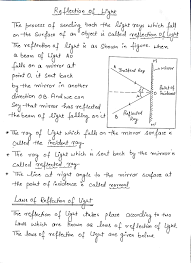 Reflection of Light
The process of sending back the light rays which fall
on the surface of an object is called reflection of light
The reflection of light is as shown in figure. when
a beam of light AO
falls on a mirror at
point O, it sent back
by the mirror in another
direction OB. And we can
say that mirror has reflected
the beam of light falling on it
Incident Ray
Normal
Reflected Ray
Point of Incidence
• The ray of light which falls on the mirror surface is
called the incident ray.
• The ray of light which is sent back by the mirror is
called reflected ray.
• The line at right angle to the mirror surface at
the point of incidence is called normal
Laws of Reflection of Light
The reflection of light takes place according to two
laws which are known as laws of reflection of light.
The laws of reflection of light are given below